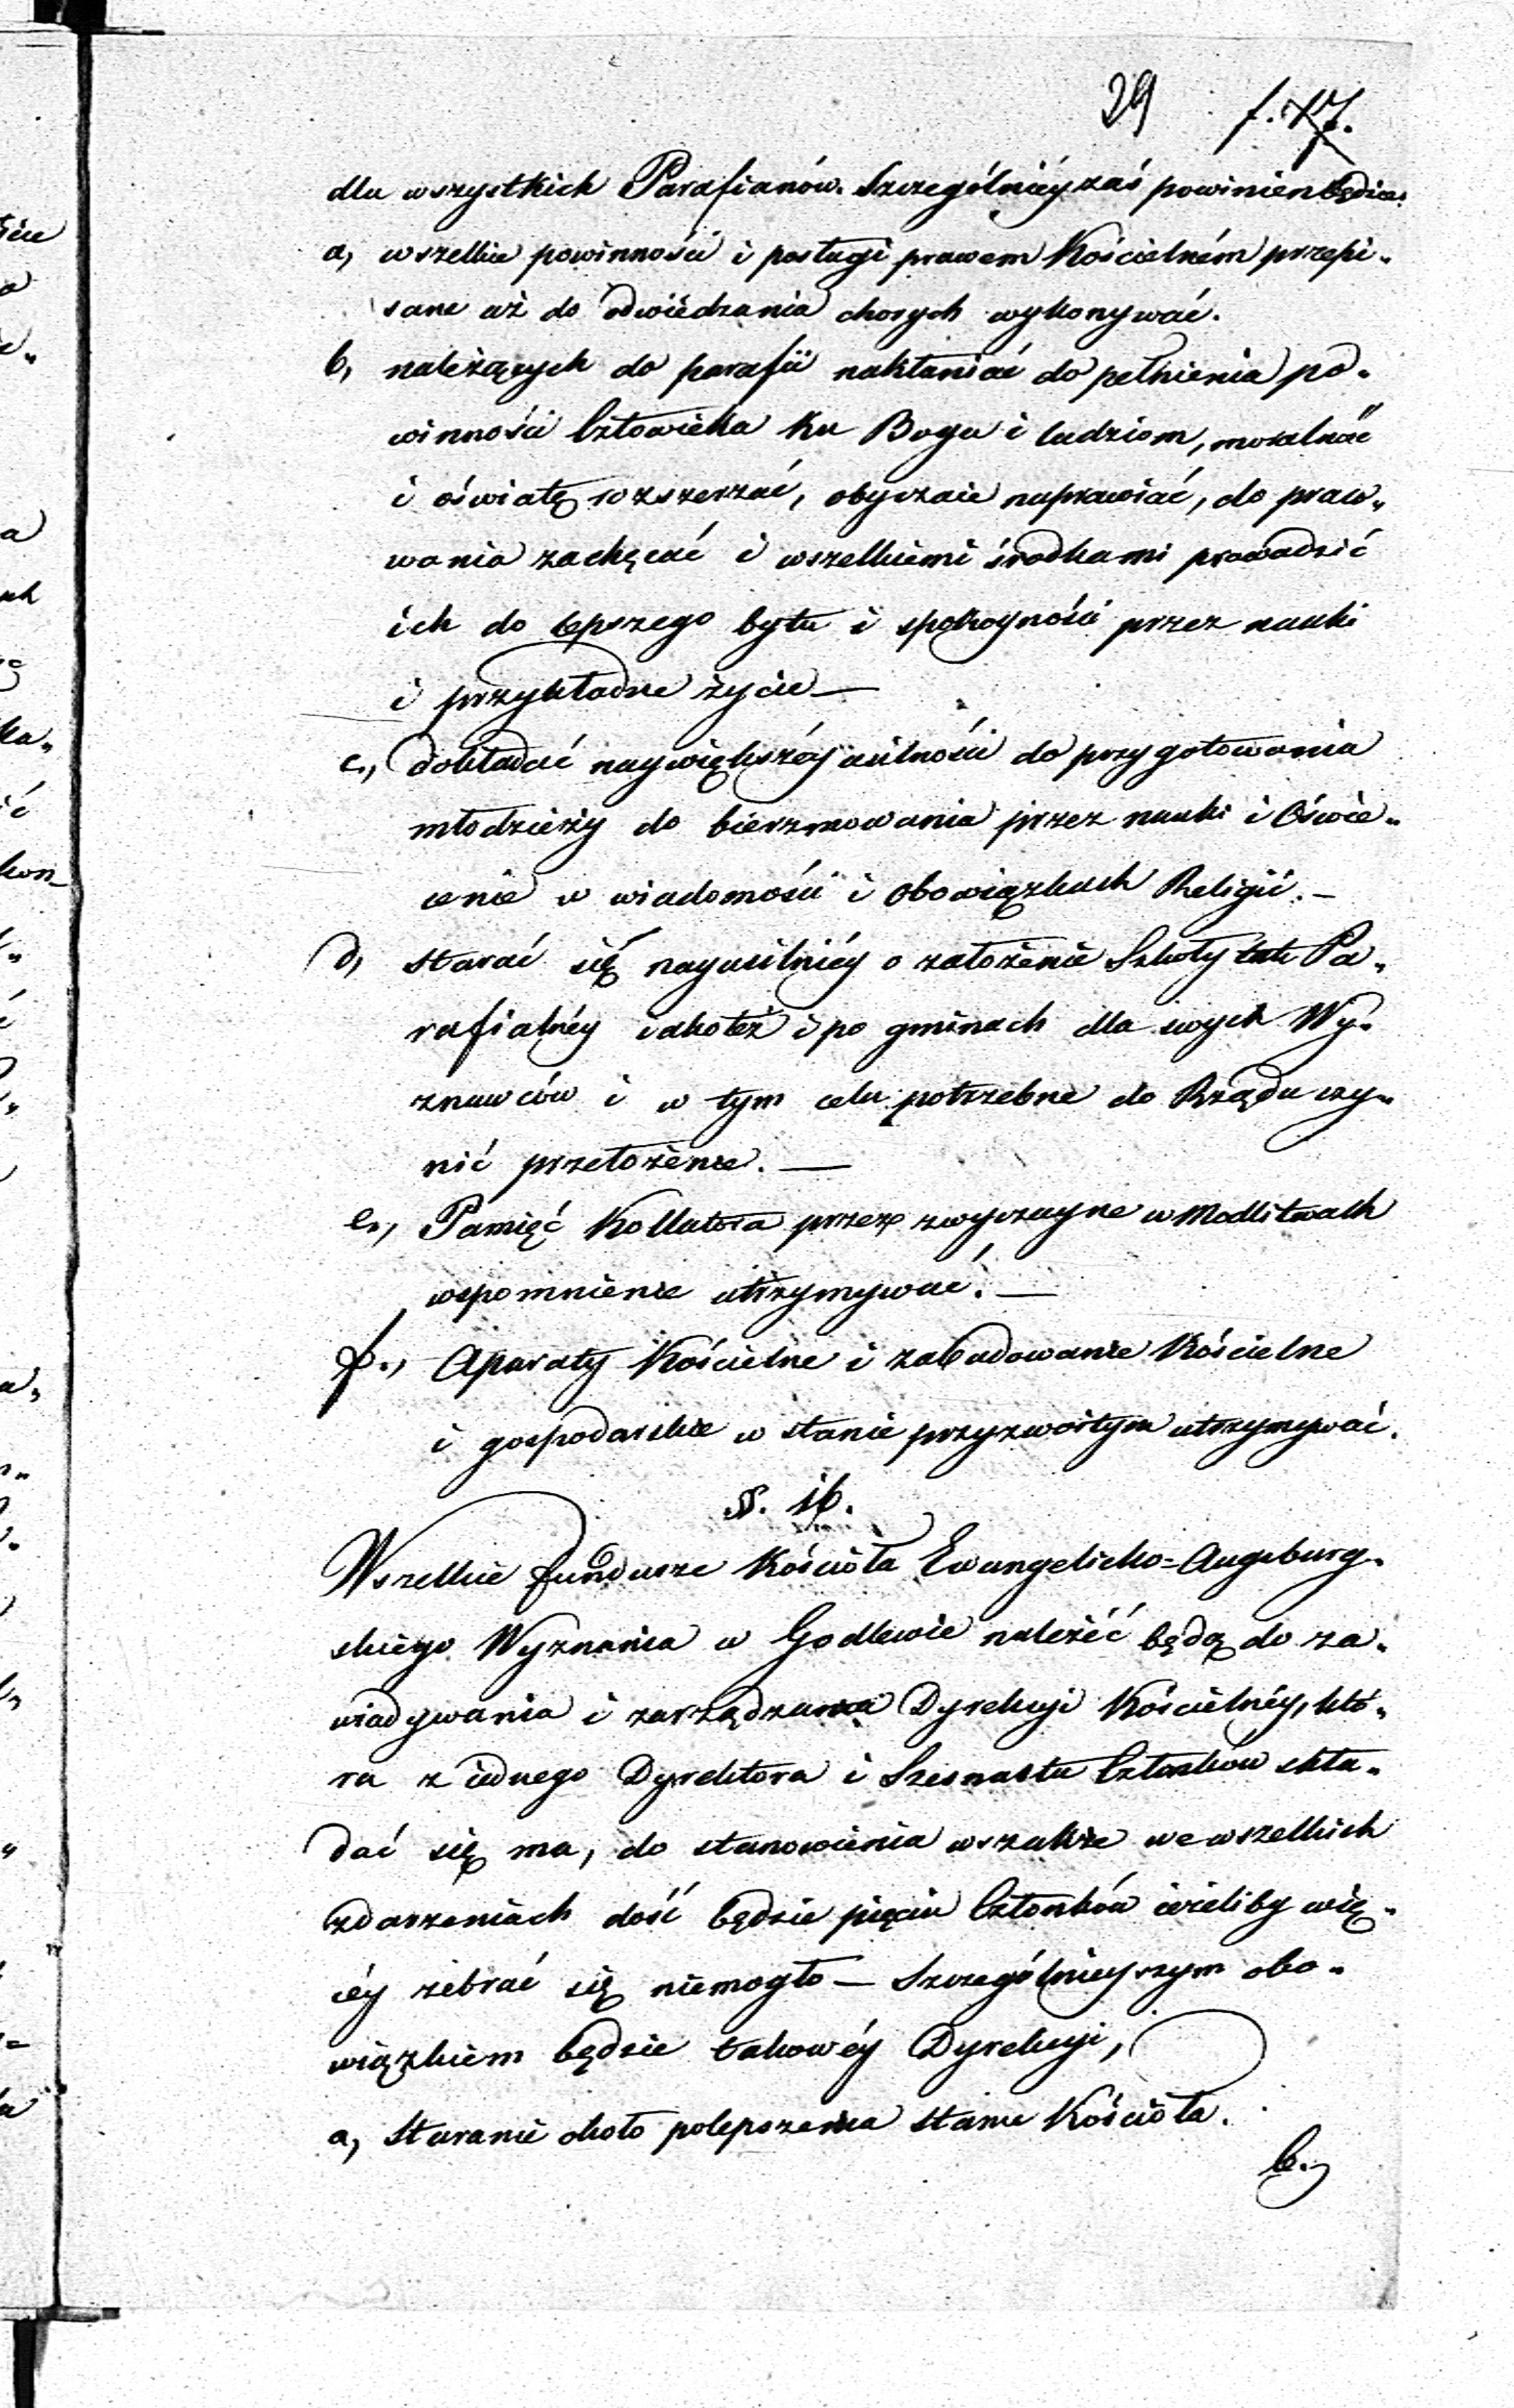 29 f. 17.
dla wszystkich Parafianów. Szczególniéy zaś powinien będzie
a, wszelkie powinności i posługi prawem Kościelném przepi„
sane aż do odwiédzania chorych wykonywać.
b, należących do parafii nakłaniać do pełnienia po„
winności Człowieka ku Bogu i ludziom, moralność
i oświatę rozszerzać, obyczaie naprawiać, do praco„
wania zachęcać i wszelkiemi środkami prowadzić
ich do lepszego bytu i spokoyności przez nauki
i przykładne życie —
c., dokładać naywiększéy usilności do przygotowania
młodzieży do bierzmowania przez nauki i Oświe„
cenie w wiadomości i obowiązkach Religii. —
d, starać się nayusilniéy o założenie Szkoły tak Pa„
rafialnéy iakoteż i po gminach dla swych Wy„
znawców i w tym celu potrzebne do Rządu czy„
nić przełożenie. —
e., Pamięć Kollatora przez zwyczayne w Modlitwach
wspomnienie utrzymywać. —
f., Aparaty Kościelne i zabudowanie Kościelne
i gospodarskie w stanie przyzwoitym utrzymywać.
§. 16.
Wszelkie fundusze Kościoła Ewangelicko=Augsburg„
skiego Wyznania w Godlewie należéć będą do za„
wiadywania i zarządzania Dyrekcyi Kościelnéy, któ„
ra z iednego Dyrektora i Szesnastu Członków skła„
dać się ma, do stanowienia wszakże we wszelkich
zdarzeniach dość będzie pięciu Członków ieżeliby wię„
céy zebrać się niemogło — Szczególnieyszym obo„
wiązkiem będzie takowéy Dyrekcyi,
a, Staranie około polepszenia stanu Kościoła.
b.,